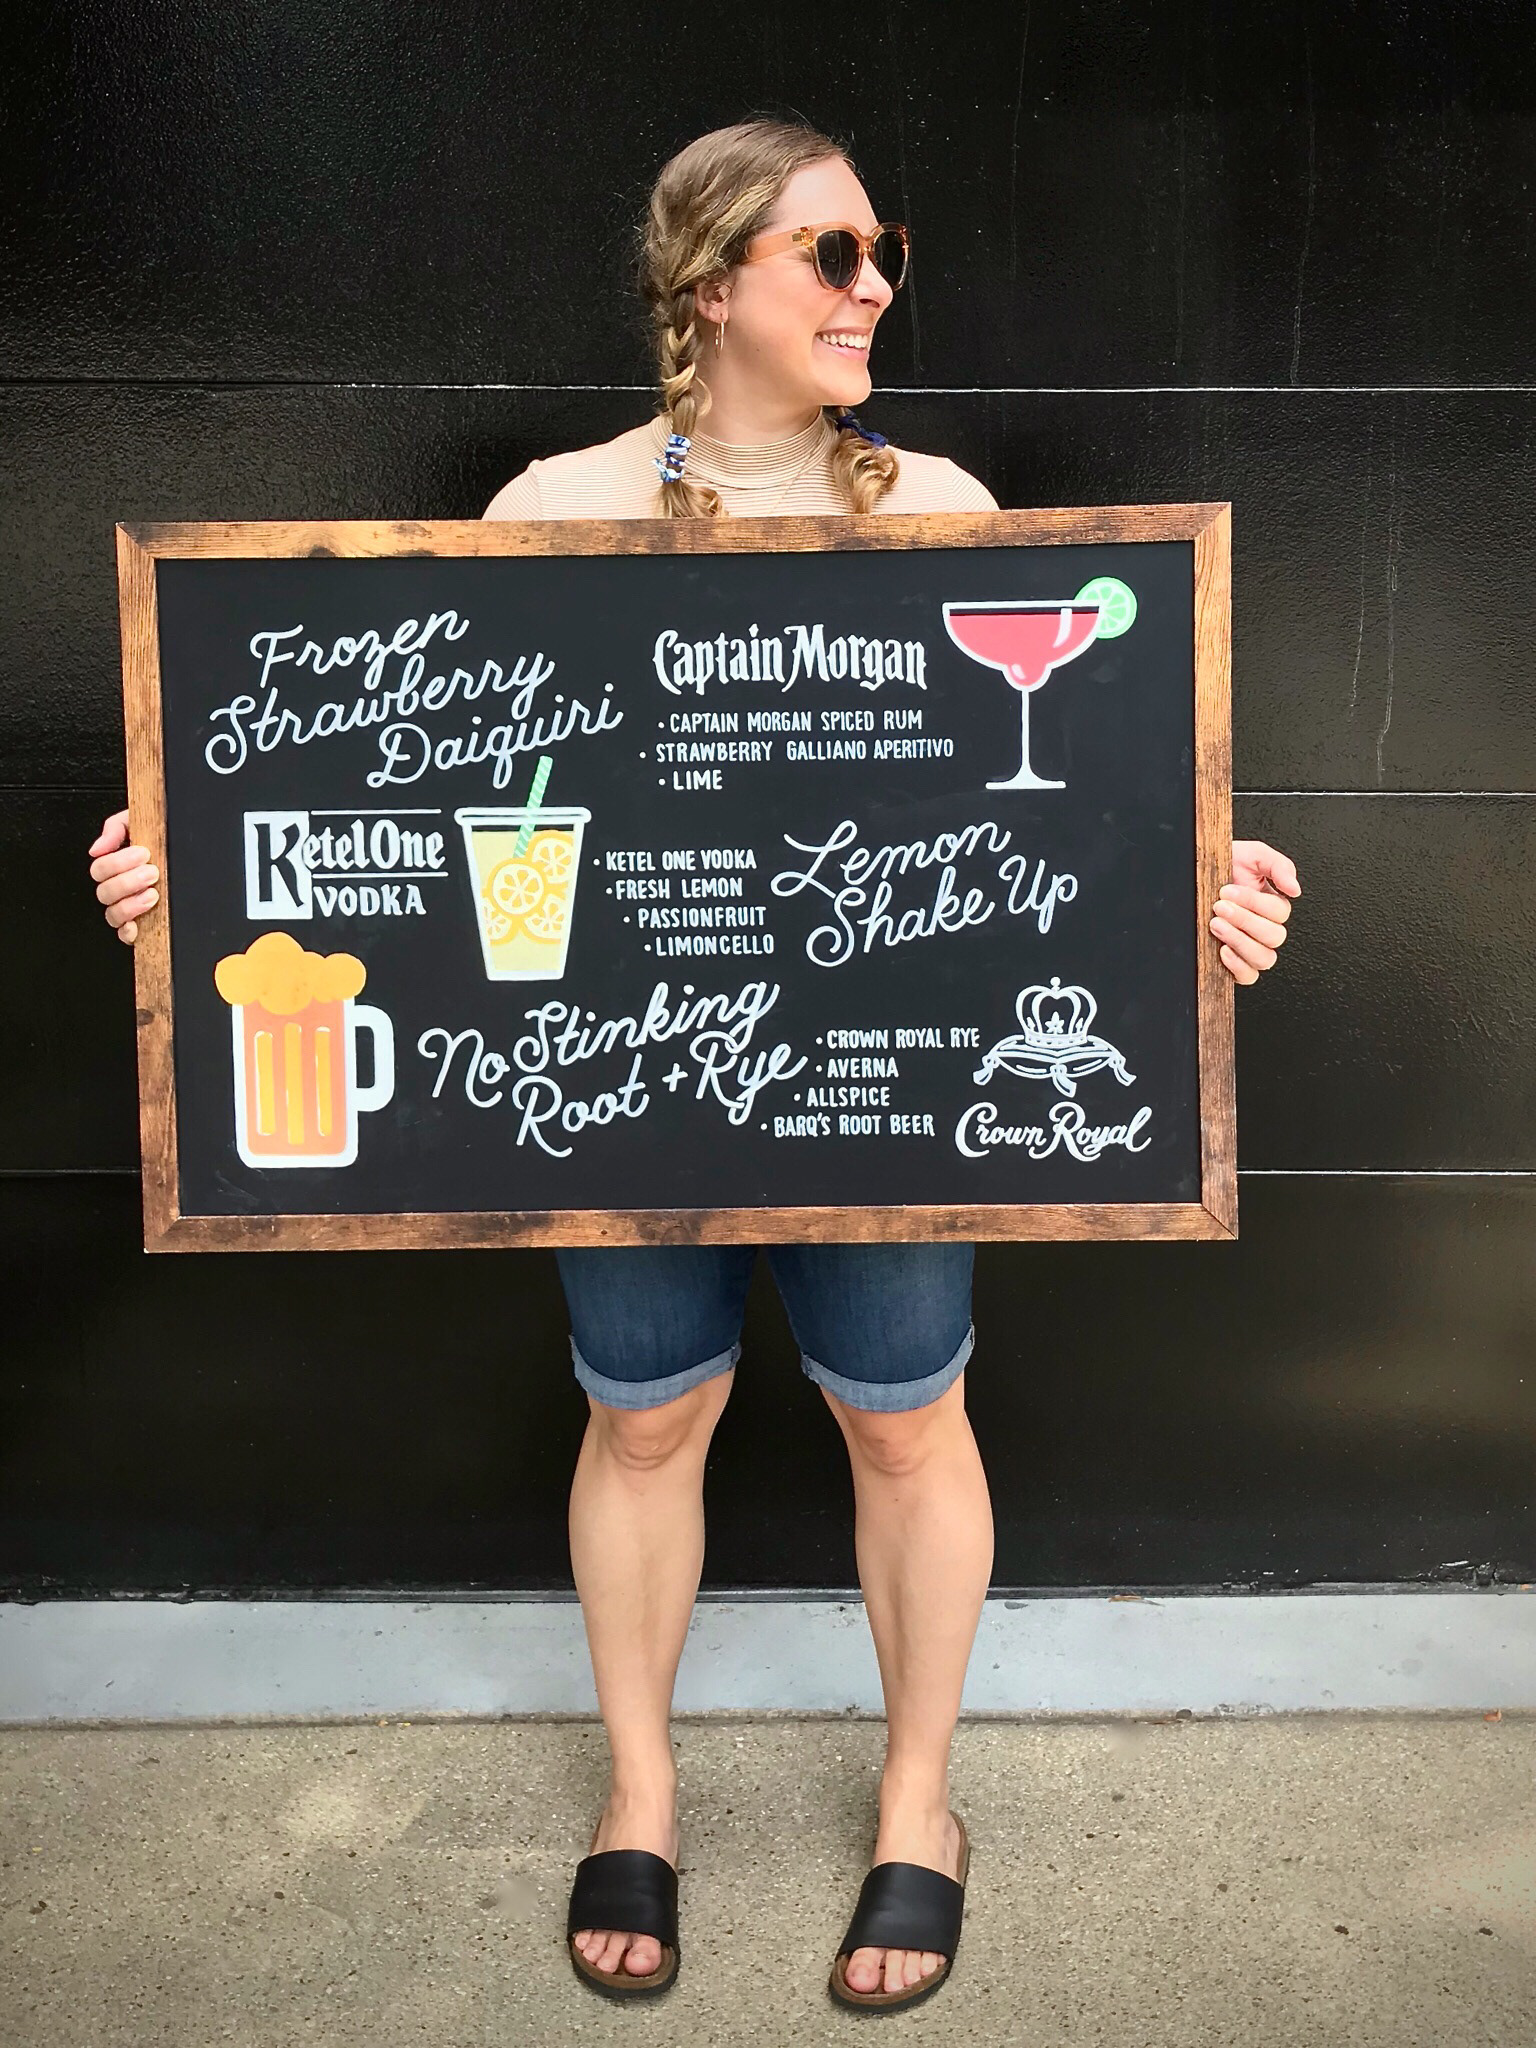 Frozen
Strawberry
Daiquiri
Captain Morgan
• CAPTAIN MORGAN SPICED RUM
• STRAWBERRY GALLIANO APERITIVO
• LIME
Ketel One
VODKA
• KETEL ONE VODKA
• FRESH LEMON
• PASSIONFRUIT
• LIMONCELLO
Lemon
Shake Up
No Stinking
Root + Rye
• CROWN ROYAL RYE
• AVERNA
• ALLSPICE
• BARQ'S ROOT BEER
Crown Royal